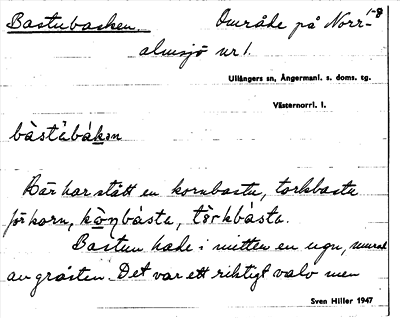 Bastubacken Område på Norr- 1-8
almsjö nr 1.
Ullångers sn, Ångermanl. s. doms. tg.
Västernorrl. l.
bàstàbákən
Här har stått en kornbastu, torkbastu
för korn, kò̱ɳbásta, tö̀rkbásta.
Bastun hade i mitten en ugn, murad
av gråsten. Det var ett riktigt valv men
Sven Hiller 1947